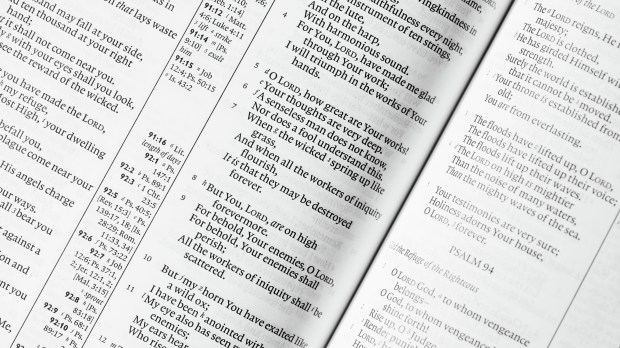 dread may fall at your side,
ten thousand at your right
hand;
it shall not come near you.
with your eyes shall you look,
see the reward of the wicked.
you have made the LORD,
my refuge,
Most High, your dwelling
befall you,
plague come near your
His angels charge
your ways.
shall bear you
against a
on and
that lays waste
91:12
4:6; Luke 4:11
91:14
91:15 Job
12:4; Ps. 50:15
Ps. 43:2
91:16 Lit.
length of days
92:1 Ps.
147:1
92:2 Ps. 89:1
92:3 1 Chr.
23:5
92:5 Ps. 40:5;
[Rev. 15:3] Ps.
139:17, 18; [Is.
28:29; Rom.
11:33, 34]
92:6 Ps. 73:22
92:7 Job
12:6; Ps. 37:1,
2; Jer. 12:1, 2;
[Mal. 3:15]
sprout
92:8 [Ps.
83:18]
92:9 Ps. 68:1
92:10 Ps.
89:17
faithfulness every night,
instrument of ten strings,
the lute,
And on the harp,
With harmonious sound.
4 For You, LORD, have made me glad
through Your work;
I will triumph in the works of Your
hands.
5 O LORD, how great are Your works!
Your thoughts are very deep.
6 A senseless man does not know,
Nor does a fool understand this.
7 When the wicked spring up like
grass,
And when all the workers of iniquity
flourish,
It is that they may be destroyed
forever.
8 But You, LORD, are on high
forevermore.
9 For behold, Your enemies, O LORD,
For behold, Your enemies shall
perish;
All the workers of iniquity shall be
scattered.
10 But my horn You have exalted like
a wild ox;
I have been anointed with
11 My eye also has seen
enemies;
My ears hear
Who rise
12
The LORD reigns, He
majesty;
The LORD is clothed,
He has girded Himself with
strength.
Surely the world is established,
that it cannot be moved.
Your throne is established from
old;
You are from everlasting.
The floods have lifted up, O LORD,
The floods have lifted up their voice;
The floods lift up their waves.
The LORD on high is mightier
Than the noise of many waters,
Than the mighty waves of the sea.
Your testimonies are very sure;
Holiness adorns Your house,
O LORD, forever.
PSALM 94
the Refuge of the Righteous
O LORD God, to whom vengeance
belongs—
O God, to whom vengeance
shine forth!
Rise up, O Judge
Render punish
LORD